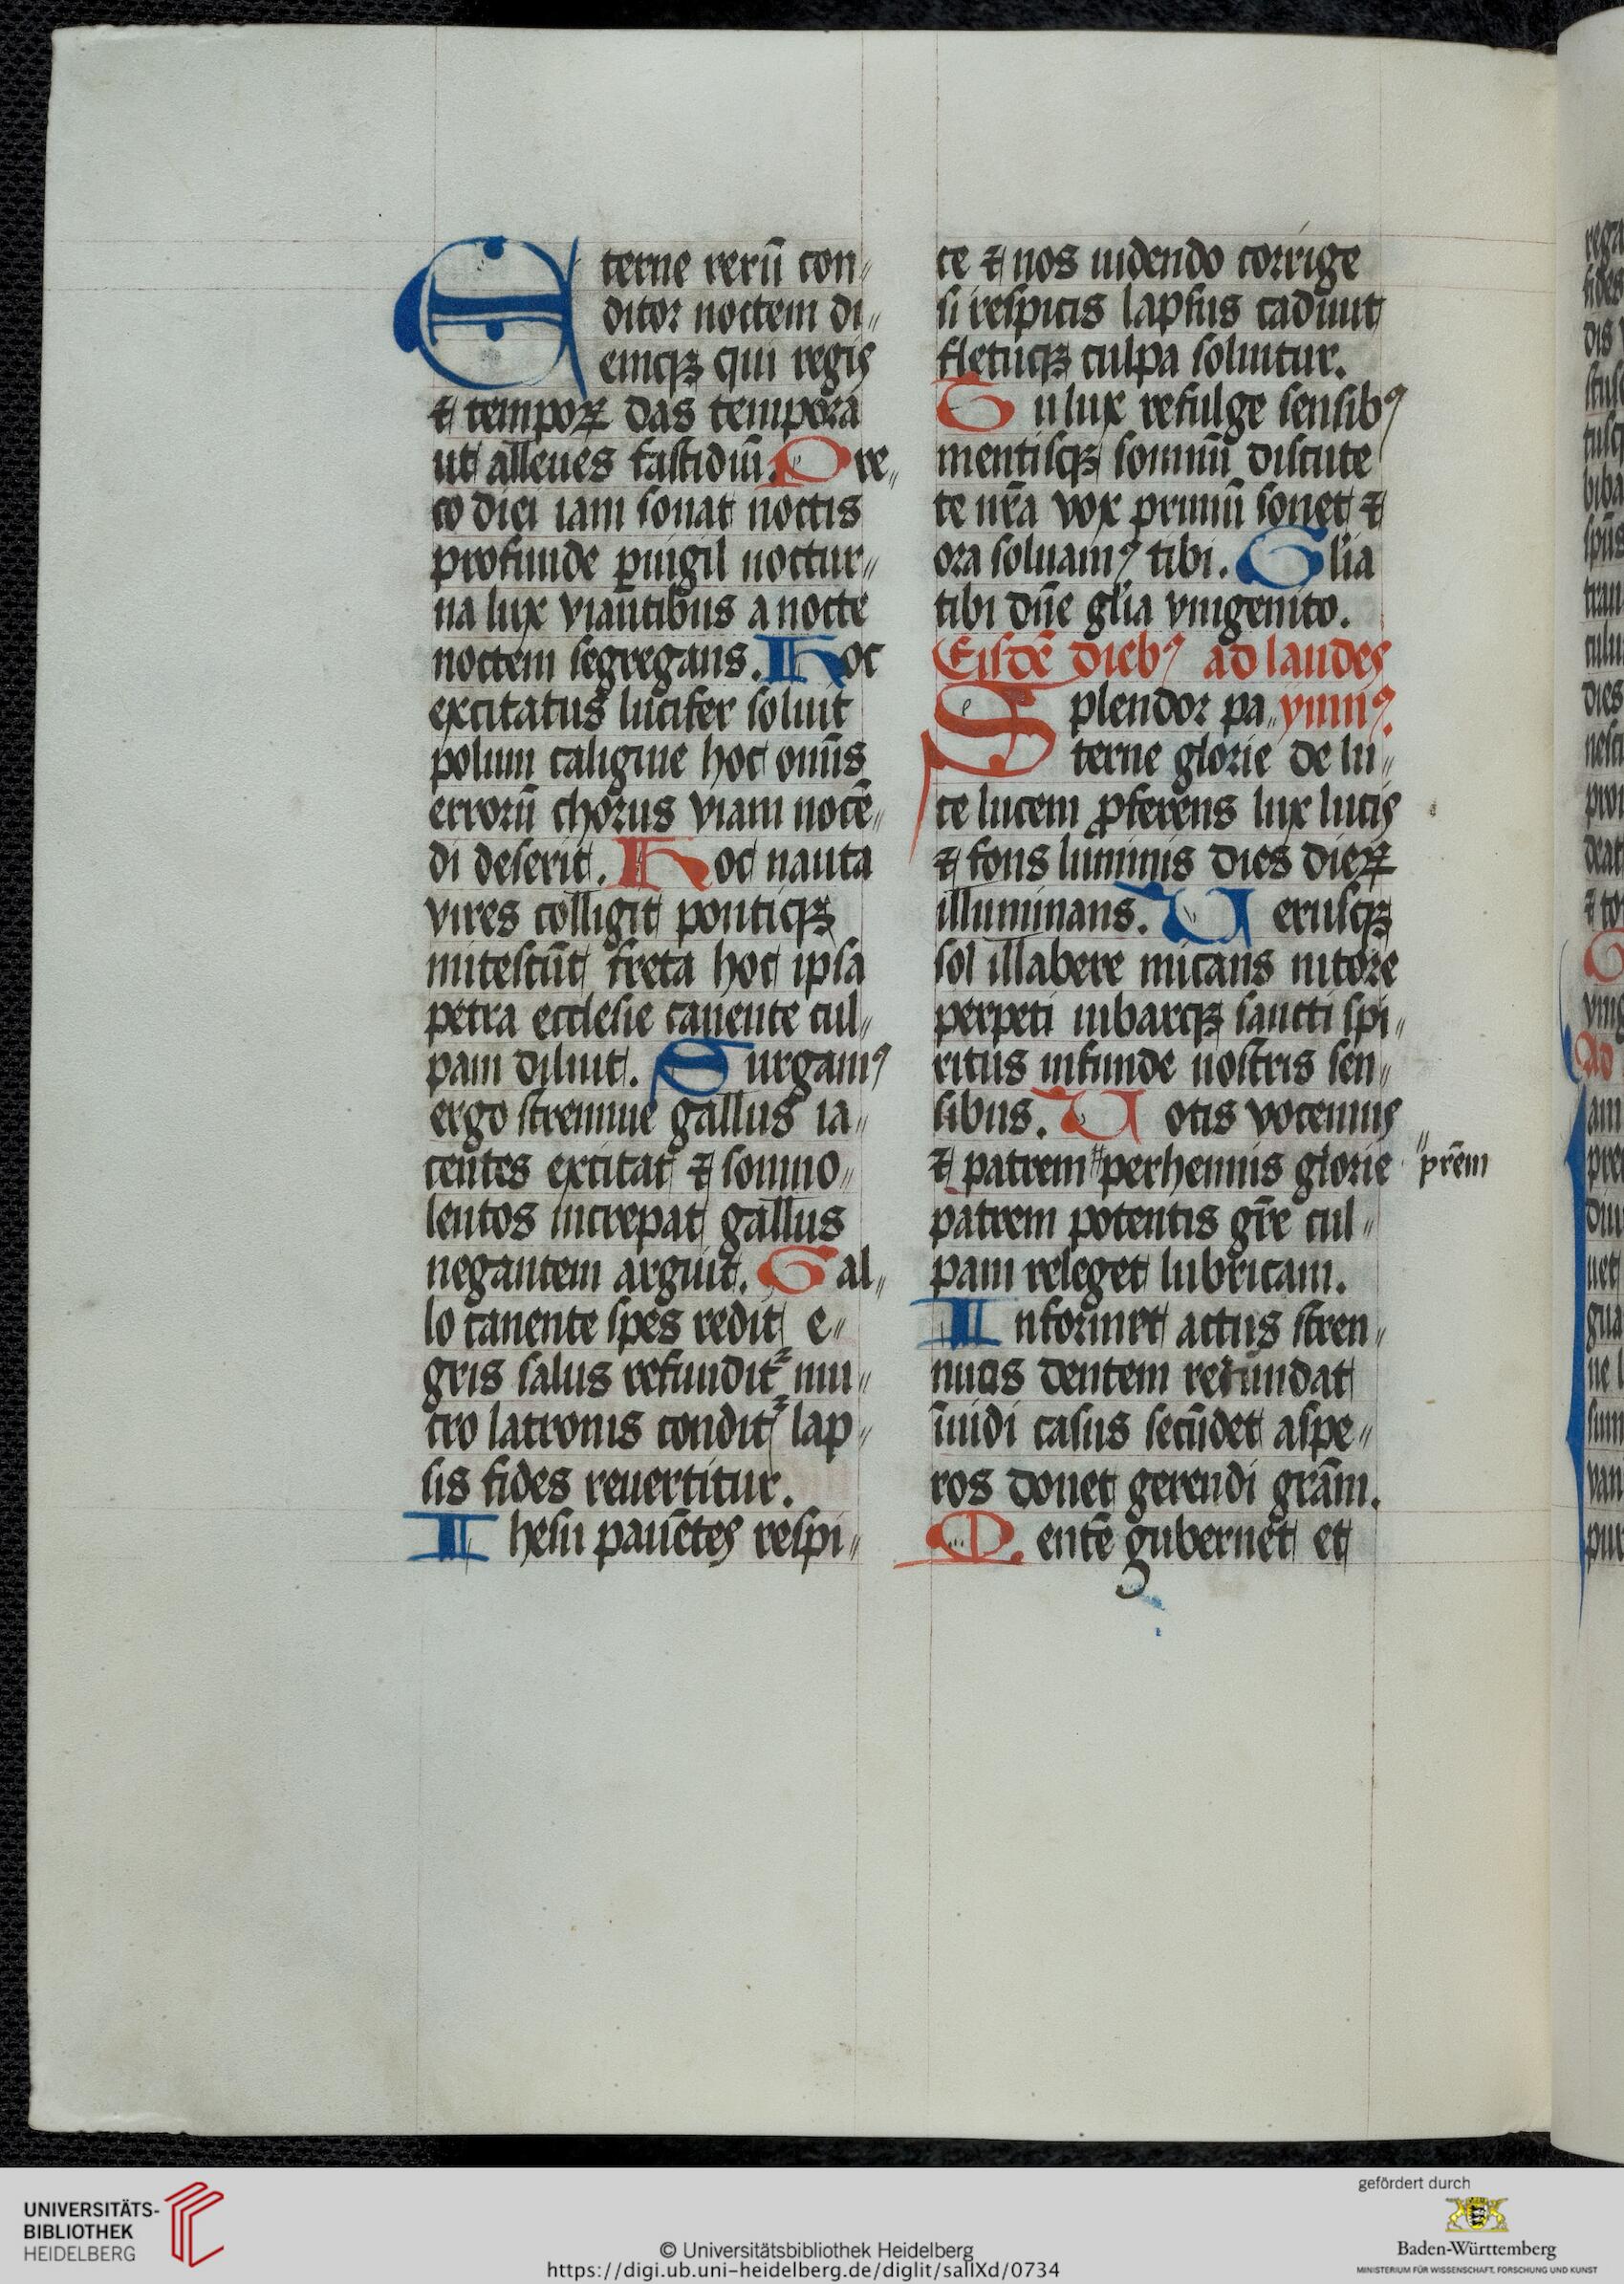 Eterne rerū con⸗
ditor noctem di⸗
emqꝫ qui regis
⁊ tempoꝝ das tempora
ut alleues fastidiū. Pre⸗
co diei iam sonat noctis
profunde ꝑuigil noctur⸗
na lux viantibus a nocte
noctem segregans. Hoc
excitatus lucifer soluit
polum caligine hoc om̄is
errorū chorus viam nocē⸗
di deserit. Hoc nauta
vires colligit pontiqꝫ
mitescūt freta hoc ipsa
petra ecclesie canente cul⸗
pam diluit. Surgamꝰ
ergo strennue gallus ia⸗
centes excitat ⁊ somno⸗
lentos increpat gallus
negantem arguit. Gal⸗
lo canente spes redit e⸗
gris salus refundit᷑ mu⸗
cro latronis condit᷑ lap⸗
sis fides reuertitur.
Ihesu pauētes respi⸗
ce ⁊ nos uidendo corrige
si respicis lapsus cadunt
fletuqꝫ culpa soluitur.
Tu lux refulge sensibꝰ
mentisqꝫ somnū discute
te nr̄a vox primū sonet ⁊
ora soluamꝰ tibi. Gl̄ia
tibi dn̄e gl̄ia vnigenito.
Eisdē diebꝰ ad laudes
Splendor pa⸗ ymnꝰ.
terne glorie de lu⸗
ce lucem ꝓferens lux lucis
⁊ fons luminis dies dieꝝ
illuminans. Uerusqꝫ
sol illabere micans nitore
perpeti iubarqꝫ sancti spi⸗
ritus infunde nostris sen⸗
sibus. Uotis vocemus
⁊ patrem " perhennis glorie " pr̄em
patrem potentis gr̄e cul⸗
pam releget lubricam.
Informet actus stren⸗
nuos dentem retundat
īuidi casus secūdet aspe⸗
ros donet gerendi grām.
Mentē gubernet et
UNIVERSITÄTS-
BIBLIOTHEK
HEIDELBERG
© Universitätsbibliothek Heidelberg
https://digi.ub.uni-heidelberg.de/diglit/salIXd/0734
gefördert durch
Baden-Württemberg
MINISTERIUM FÜR WISSENSCHAFT, FORSCHUNG UND KUNST